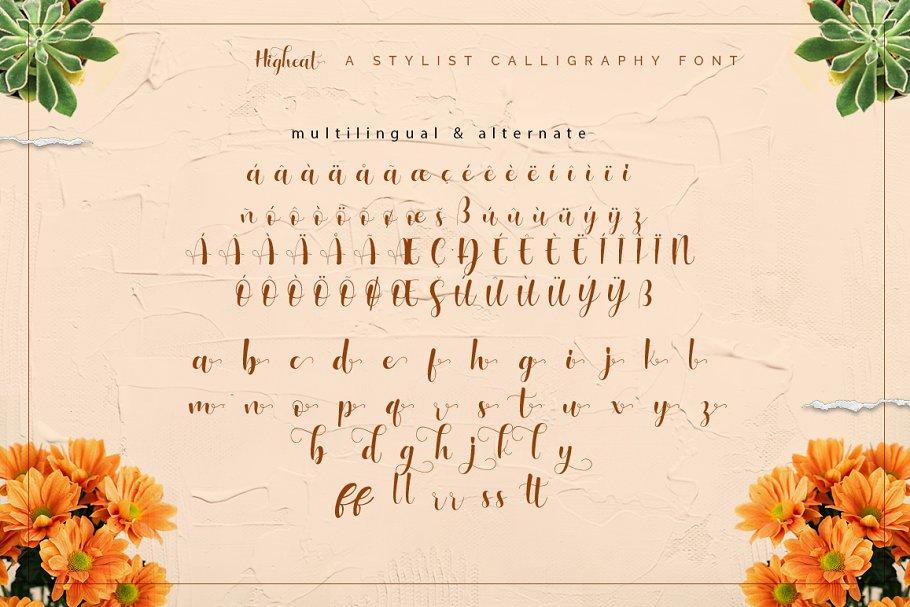 Higheat A STYLIST CALLIGRAPHY FONT
multilingual & alternate
á â à ä å ã æ ç é ê è ë í î ì ï i
ñ ó ô ò ö õ ø œ š ß ú û ù ü ý ÿ ž
Á Â À Ä Å Ã Æ Ç Ð É Ê È Ë Í Î Ì Ï Ñ
Ó Ô Ò Ö Õ Ø Œ Š Ú Û Ù Ü Ý Ÿ ß
a b c d e f h g i j k l
m n o p q r s t u x y z
b d g h j k l y
ff ll rr ss tt